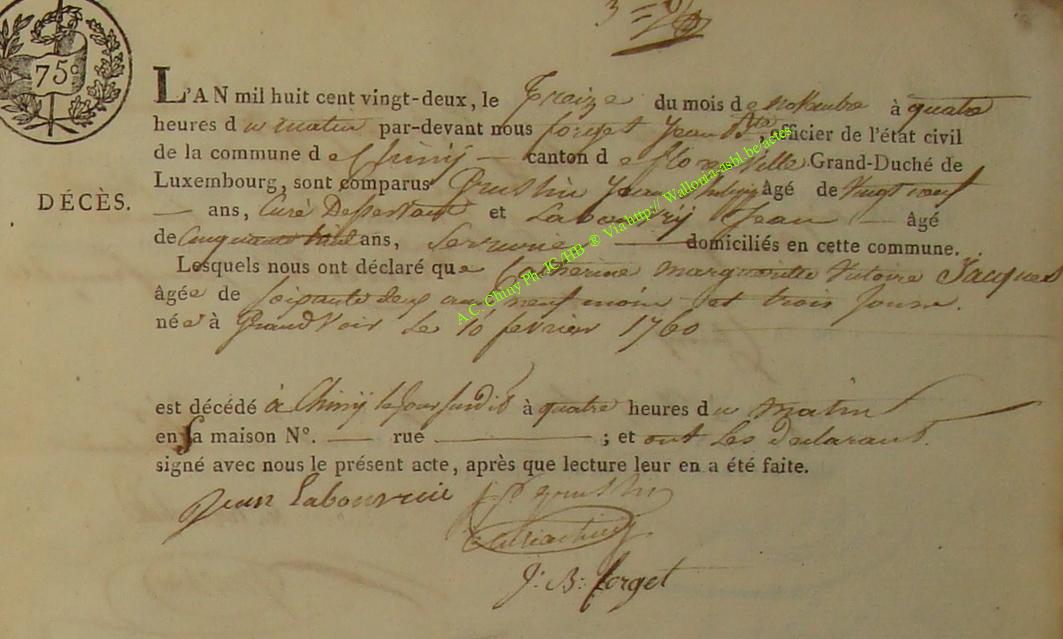 75c
L'AN mil huit cent vingt-deux, le Treize du mois de novembre à quatre
heures du matin par-devant nous forget Jean Bte, officier de l'état civil
de la commune de Chiny canton de florenville Grand-Duché de
Luxembourg, sont comparus Jean âgé de Vingt neuf
DÉCÈS.
ans, Curé Desservant et Jean âgé
de Cinquante ans, domiciliés en cette commune.
Lesquels nous ont déclaré que Catherine Margueritte Victoire Jacques
âgée de soixante deux ans neuf mois et trois jours.
née à Grandvoir le 10 fevrier 1760
est décédé à Chiny le jour susdit à quatre heures du matin
en sa maison N°. rue ; et ont les declarans
signé avec nous le présent acte, après que lecture leur en a été faite.
Jean Labouverie
J: B: forget
A.C. Chiny Ph. JC/HB ® Via http:// Wallonia-asbl.be/actes